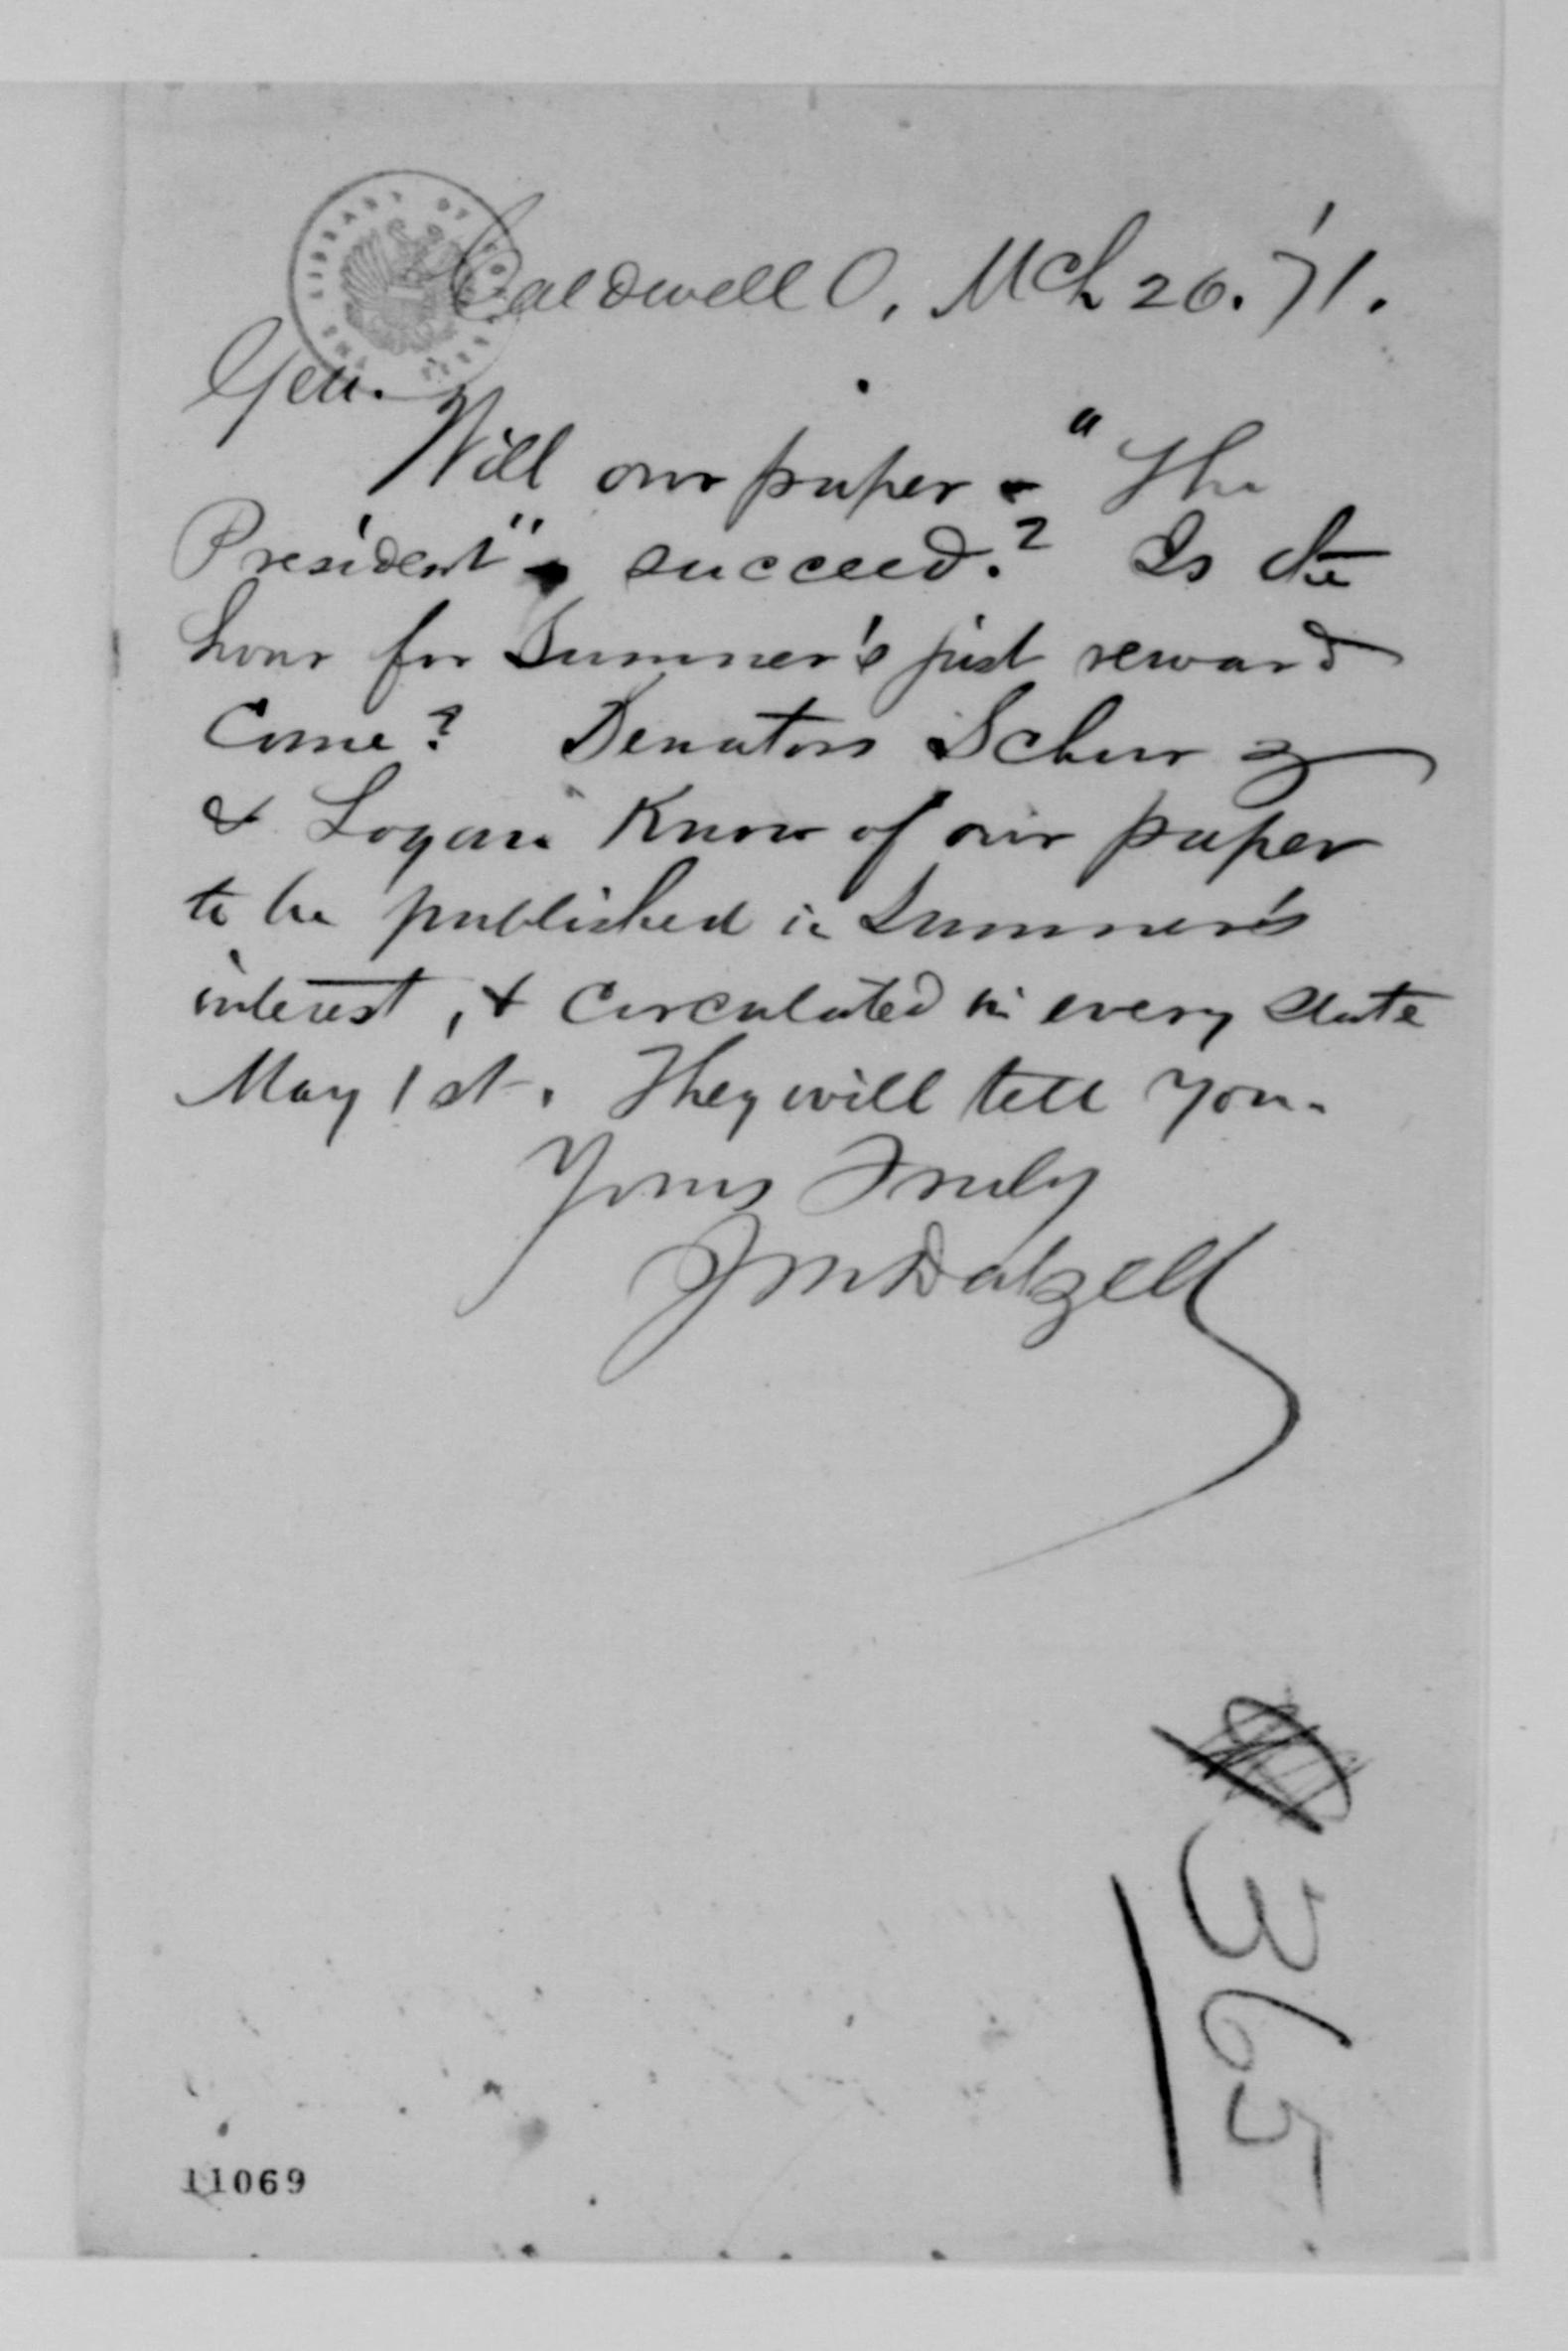 Caldwell O, Mch 26. '71.
Gen.
Will our paper - "The
President" - succeed.? Is the
hour for Sumner's just reward
Come? Senators Schurz
& Logan Know of our paper
to be published in Sumner's
interest, & circulated in every state
May 1st. They will tell you.
Yours Truly
J M Dalzell
365
11069